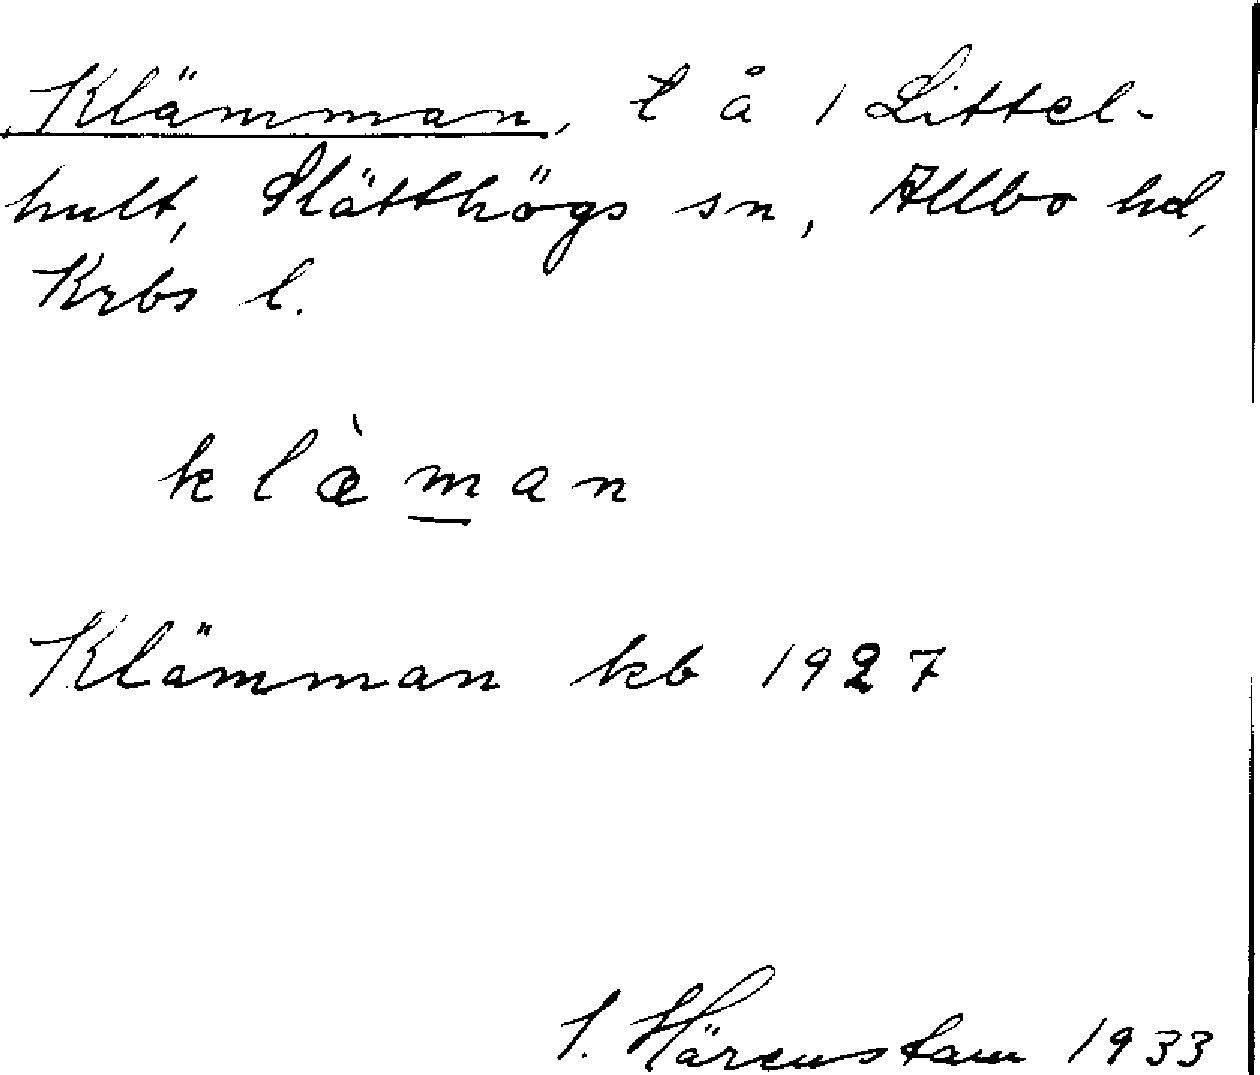 Klämman, t å 1 Littel-
hult, Slätthögs sn, Allbo hd,
Krbs l.
klæ̀m̲an
Klämman kb 1927
I. Härenstam 1933